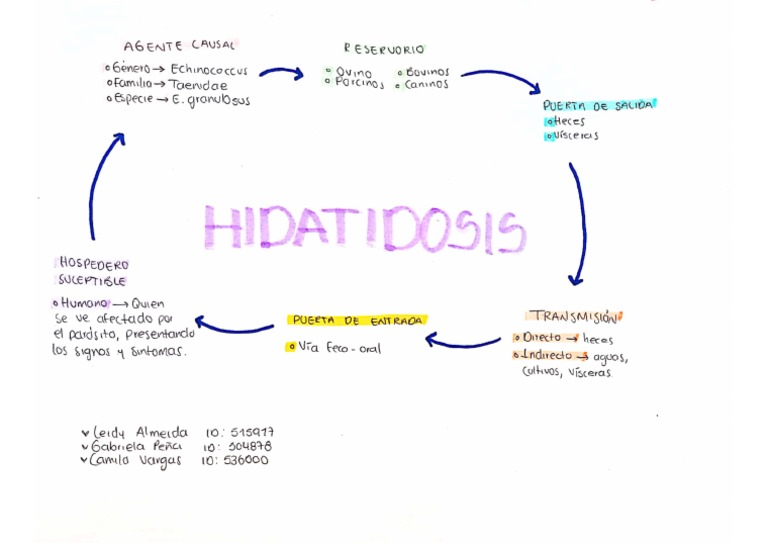 AGENTE CAUSAL
Género → Echinococcus
Familia → Taenidae
Especie → E. granulosus
RESERVORIO
Ovino
Bovinos
Porcinos
Caninos
PUERTA DE SALIDA
Heces
Vísceras
HIDATIDOSIS
TRANSMISIÓN
Directo → heces
Indirecto → aguas,
cultivos, vísceras
PUERTA DE ENTRADA
Vía feco-oral
HOSPEDERO
SUCEPTIBLE
Humano → Quien
se ve afectado por
el parásito, presentando
los signos y sintomas.
Leidy Almeida ID: 515917
Gabriela Peña ID: 504878
Camilo Vargas ID: 536000